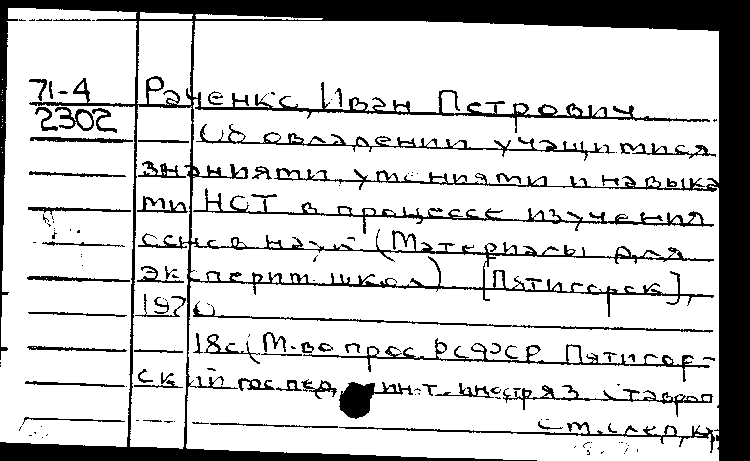 71-4
2302
Раченко, Иван Петрович.
Об овладении учащимися
знаниями, умениями и навыка
ми НОТ в процессе изучения
основ наук (Материалы для
эксперим. школ) [Пятигорск],
1970.
18с (М-во прос. РСФСР. Пятигор-
ский гос. пед. ин-т. иностр яз. Ставроп.
см. след. к.